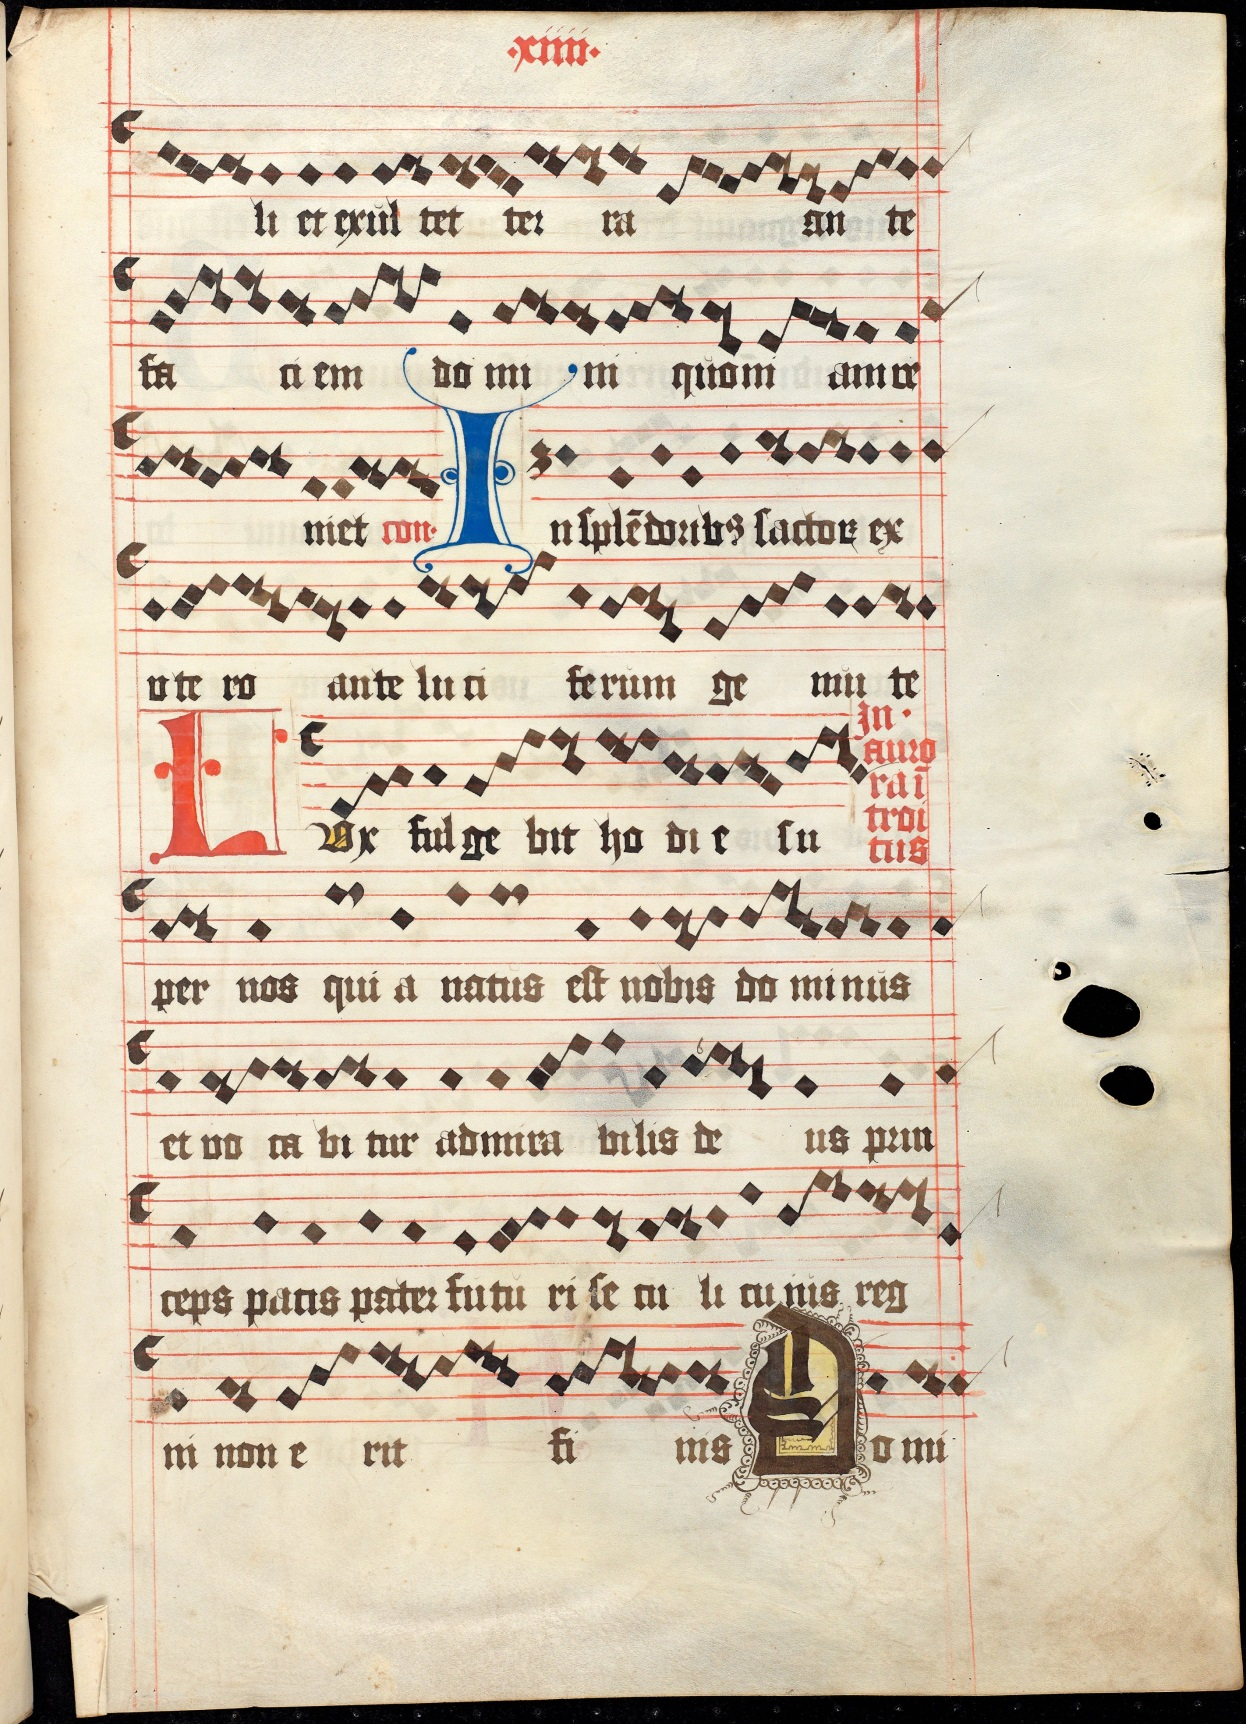 ·xiiii·
li et exul tet ter ra an te
fa ci em do mi ni quoni am ve
niet con· In splēdoribꝫ sāctoꝝ ex
vte ro ante luci ferum ge nui te
Lux fulge bit ho di e su
In·
auro
ra ī
troi
tus
per nos qui a natus est nobis do minus
et vo ca bi tur admira bilis de us prin
ceps pacis pater futu ri se cu li cuius reg
ni non e rit fi nis Domi